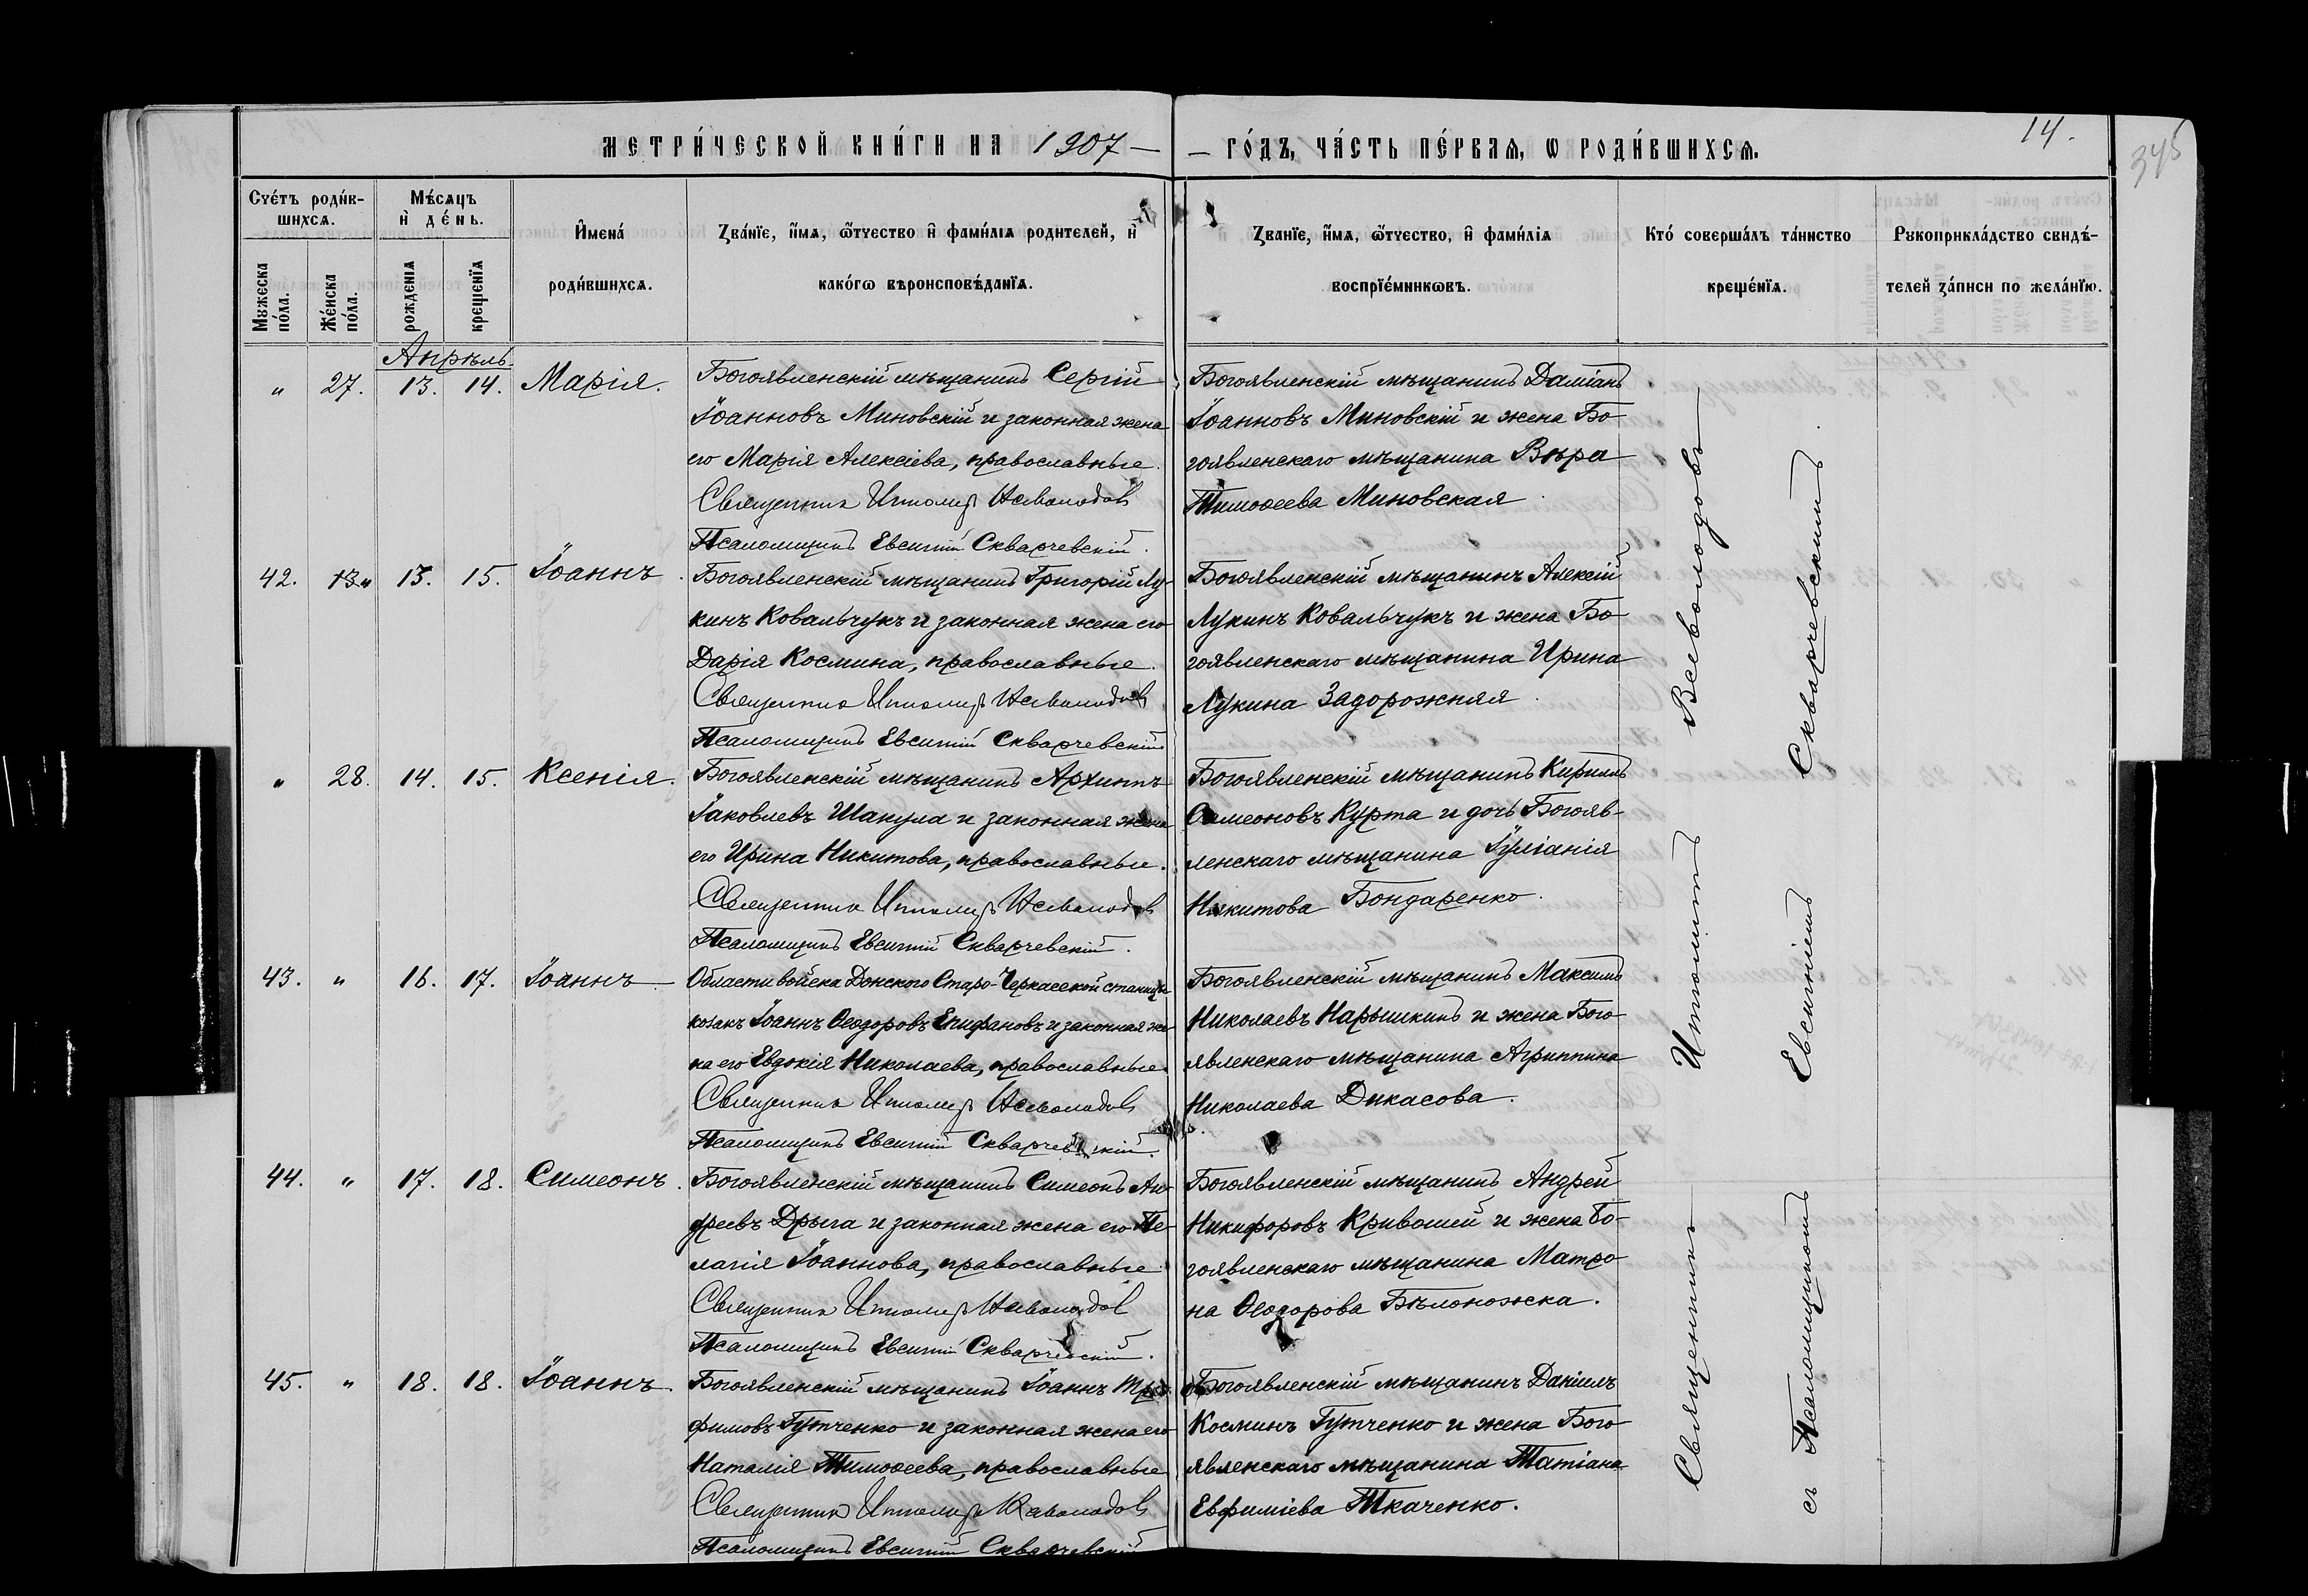 МЕТРИ́ЧЕСКОЙ КНИ́ГИ НА 1907 —
— ГО́ДЪ, ЧА́СТЬ ПЕ́РВАѦ, Ѡ РОДИ́ВШИХСѦ.
14.
345
Сче́тъ роди́в-
шихсѧ.
Мѣ́сѧцъ
и де́нь.
Мꙋжеска
по́ла.
Же́нска
по́ла.
рожденіѧ
крещенїѧ
Имена́
роди́вшихсѧ.
Зва́нїе, имѧ, ѻтчество и фами́лїѧ родителей, и
како́гѡ вѣроисповѣ́данїѧ.
Званїе, имѧ, ѻтчество, и фами́лїѧ
воспрїе́мникѡвъ.
Кто́ соверша́лъ та́инство
креще́нїѧ.
Рꙋкоприкла́дство свидѣ́-
телей за́писи по жела́нїю.
Апрѣль.
" 27. 13. 14. Марія.
Богоявленскій мѣщанинъ Сергій
Іоанновъ Миновскій и законная жена
его Марія Алексіева, православные.
Священникъ Всеволодовъ
Псаломщикъ Евсигній Скварчевскій.
Богоявленскій мѣщанинъ Даміанъ
Іоанновъ Миновскій и жена Бо-
гоявленскаго мѣщанина Вѣра
Тимоѳеева Миновская.
42. 13 " 13. 15. Іоаннъ.
Богоявленскій мѣщанинъ Григорій Лу-
кинъ Ковальчукъ и законная жена его
Дарія Космина, православные.
Священникъ Всеволодовъ
Псаломщикъ Евсигній Скварчевскій
Богоявленскій мѣщанинъ Алексій
Лукинъ Ковальчукъ и жена Бо-
гоявленскаго мѣщанина Ирина
Лукина Задорожняя.
" 28. 14. 15. Ксенія.
Богоявленскій мѣщанинъ Архиппъ
Іаковлевъ Шакула и законная жена
его Ирина Никитова, православные.
Священникъ Всеволодовъ
Псаломщикъ Евсигній Скварчевскій.
Богоявленскій мѣщанинъ Кириллъ
Симеоновъ Курта и дочь Богояв-
ленскаго мѣщанина Іуліанія
Никитова Бондаренко.
43. " 16. 17. Іоаннъ
Области войска Донского Старо-Черкасской станицы
козакъ Іоаннъ Ѳеодоровъ Епифановъ и законная же-
на его Евдокія Николаева, православные.
Священникъ Всеволодовъ
Псаломщикъ Евсигній Скварчевскій.
Богоявленскій мѣщанинъ Максимъ
Николаевъ Нарышкинъ и жена Бого-
явленскаго мѣщанина Агриппина
Николаева Дикасова.
44. " 17. 18. Симеонъ.
Богоявленскій мѣщанинъ Симеонъ Ан-
дреевъ Дрыга и законная жена его Пе-
лагія Іоаннова, православные
Священникъ Всеволодовъ
Псаломщикъ Евсигній Скварчевскій.
Богоявленскій мѣщанинъ Андрей
Никифоровъ Кривошей и жена Бо-
гоявленскаго мѣщанина Матро-
на Ѳеодорова Бѣлоножка.
45. " 18. 18. Іоаннъ.
Богоявленскій мѣщанинъ Іоаннъ Тро-
фимовъ Гутченко и законная жена его
Наталія Тимоѳеева, православные
Священникъ Всеволодовъ
Псаломщикъ Евсигній Скварчевскій
Богоявленскій мѣщанинъ Даніилъ
Косминъ Гутченко и жена Бого-
явленскаго мѣщанина Татіана
Евфиміева Ткаченко.
Священникъ Всеволодовъ
съ Псаломщикомъ Евсигніемъ Скварчевскимъ.